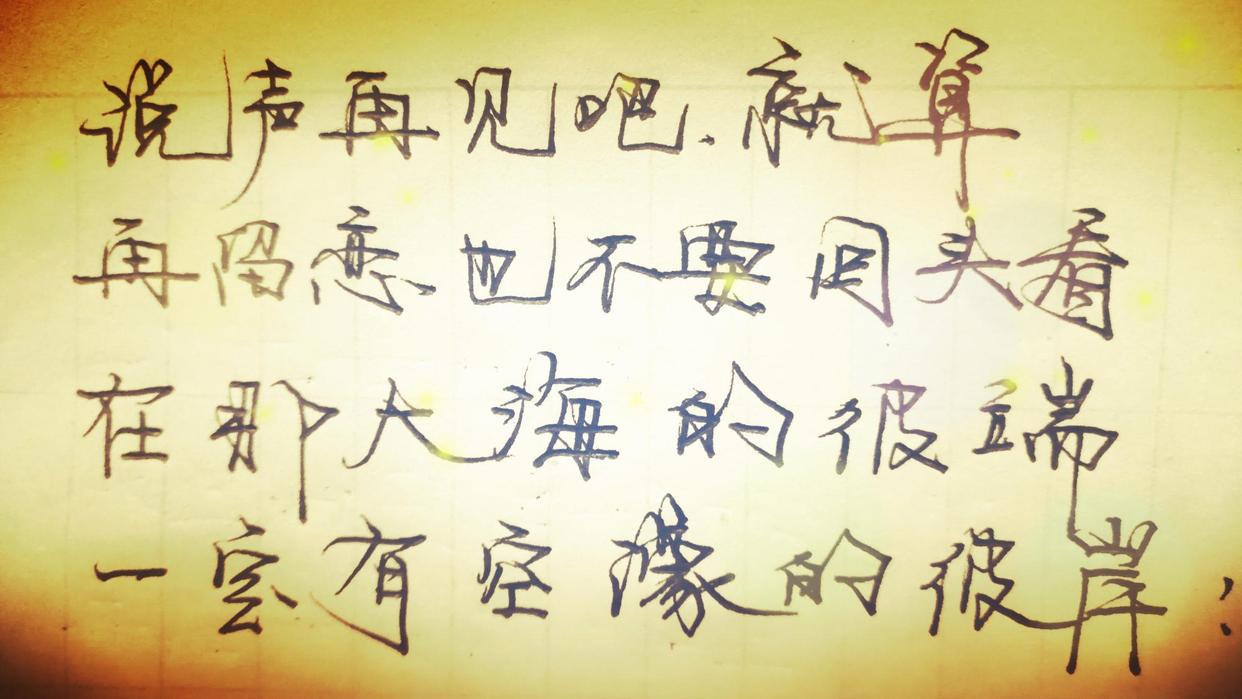 说声再见吧.就算
再留恋也不要回头看
在那大海的彼端
一定有空濛的彼岸;